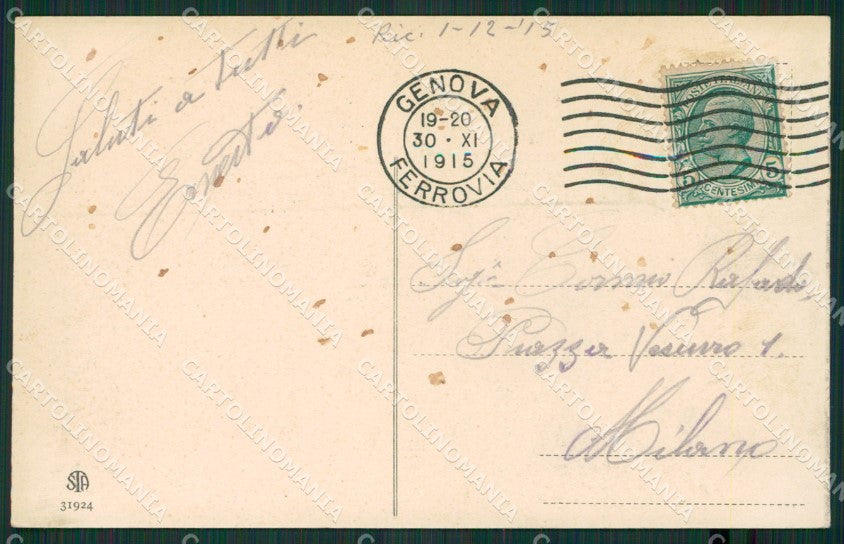 Ric. 1-12-'15
Saluti a tutti
Ernesto
GENOVA
19-20
30 · XI
1915
FERROVIA
5 CENTESIMI 5
Piazza Vesuvio 1.
Milano
STA
31924
CARTOLINOMANIA